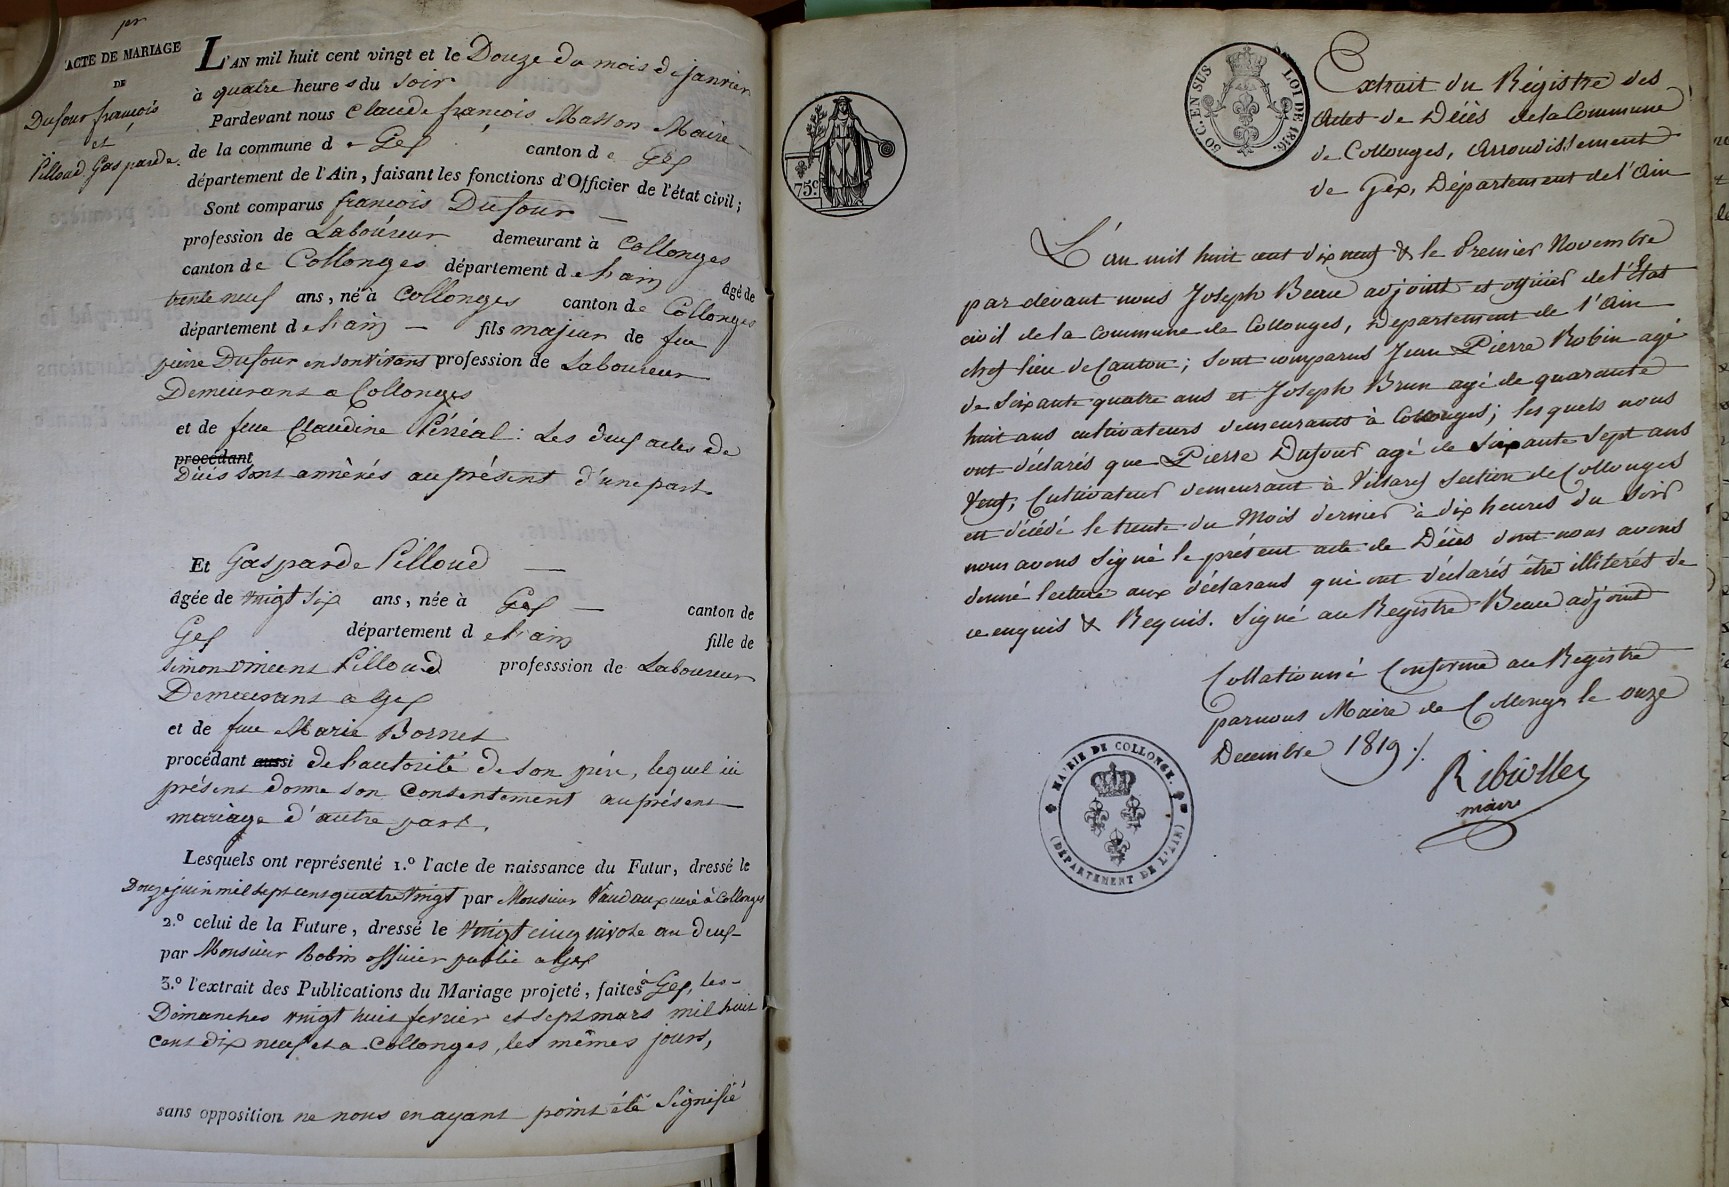 pr
ACTE DE MARIAGE
DE
Dufour françois
et
Pilloud Gasparde.
L'AN mil huit cent vingt et le Douze du mois de janvier
à quatre heures du soir
Pardevant nous Claude françois Masson Maire
de la commune de Gex canton de Gex
département de l'Ain, faisant les fonctions d'Officier de l'état civil;
Sont comparus françois Dufour
profession de Laboureur demeurant à Collonges
canton de Collonges département de l'ain âgé de
trente neuf ans, né à Collonges canton de Collonges
département de l'ain fils majeur de feu
pierre Dufour en son vivant profession de Laboureur
Demeurant a Collonges
et de feue Claudine Pénéal : Les deux actes de
procédant
Décés sont annéxés au présent d'une part.
Et Gasparde Pilloud
âgée de vingt six ans, née à Gex canton de
Gex département de l'ain fille de
simon vincent Pilloud professsion de Laboureur
Demeurant a Gex
et de feue Marie Bornet
procédant aussi de l'autorité de son père, lequel ici
présent donne son consentement au présent
mariage d'autre part.
Lesquels ont représenté 1.º l'acte de naissance du Futur, dressé le
Douze juin mil sept cent quatre vingt par Monsieur Vaudaux curé à Collonges
2.º celui de la Future, dressé le vingt cinq nivose an deux
par Monsieur Robin officier public a Gex
3.º l'extrait des Publications du Mariage projeté, faites à Gex, les
Dimanches vingt huit fevrier et sept mars mil huit
cent dix neuf et a Collonges, les mêmes jours,
sans opposition ne nous en ayant point été Signifié
75.C
50 C. EN SUS
LOI DE 1816.
Extrait du Régistre des
Actes de Décès de la Commune
de Collonges, Arrondissement
de Gex, Département de l'Ain
L'an mil huit cent dix neuf & le Premier Novembre
par devant nous Joseph Beau adjoint et officier de l'État
civil de la Commune de Collonges, Département de l'Ain
chef lieu de Canton; sont comparus Jean Pierre Robin agé
de soixante quatre ans et Joseph Brun agé de quarante
huit ans cultivateurs demeurants à Collonges; lesquels nous
ont déclarés que Pierre Dufour agé de soixante sept ans
Veuf, Cultivateur demeurant à Villard section de Collonges
est décédé le trente du Mois dernier à dix heures du Soir
nous avons Signé le présent acte de Décès dont nous avons
donné lecture aux déclarans qui ont déclarés être illiterés de
ce enquis & Requis. Signé au Registre Beau adjoint
Collationné Conforme au Registre
par nous Maire de Collonges le onze
Decembre 1819 ./.
maire
MAIRIE DE COLLONGE.
(DÉPARTEMENT DE L'AIN)